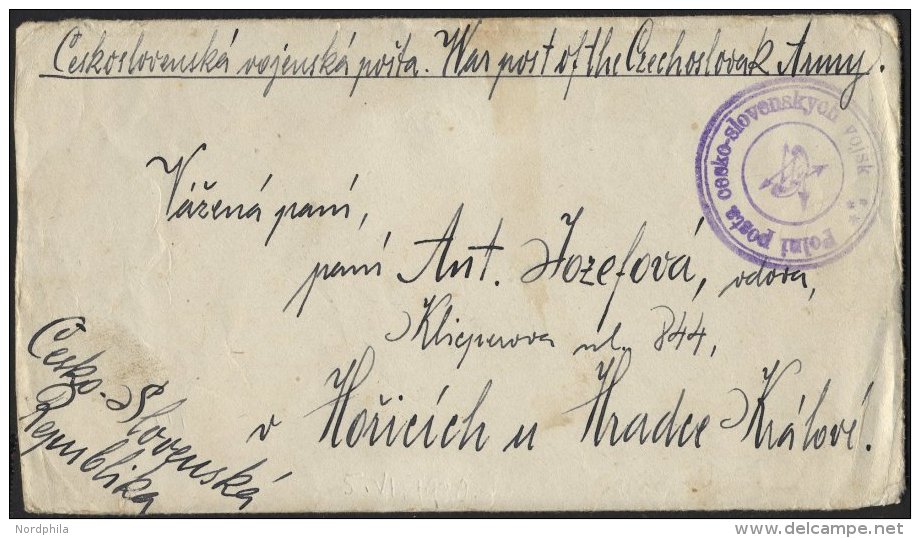 Československá vojenská pošta. War post of the Czechoslovak Army.
Polní pošta česko-slovenských vojsk **
Vážená paní,
paní Ant. Jozefová, vdova,
Klicperova ul. 844,
v Hořicích u Hradce Králové.
Česko-Slovenská
Republika
Nordphila
delcampe.net